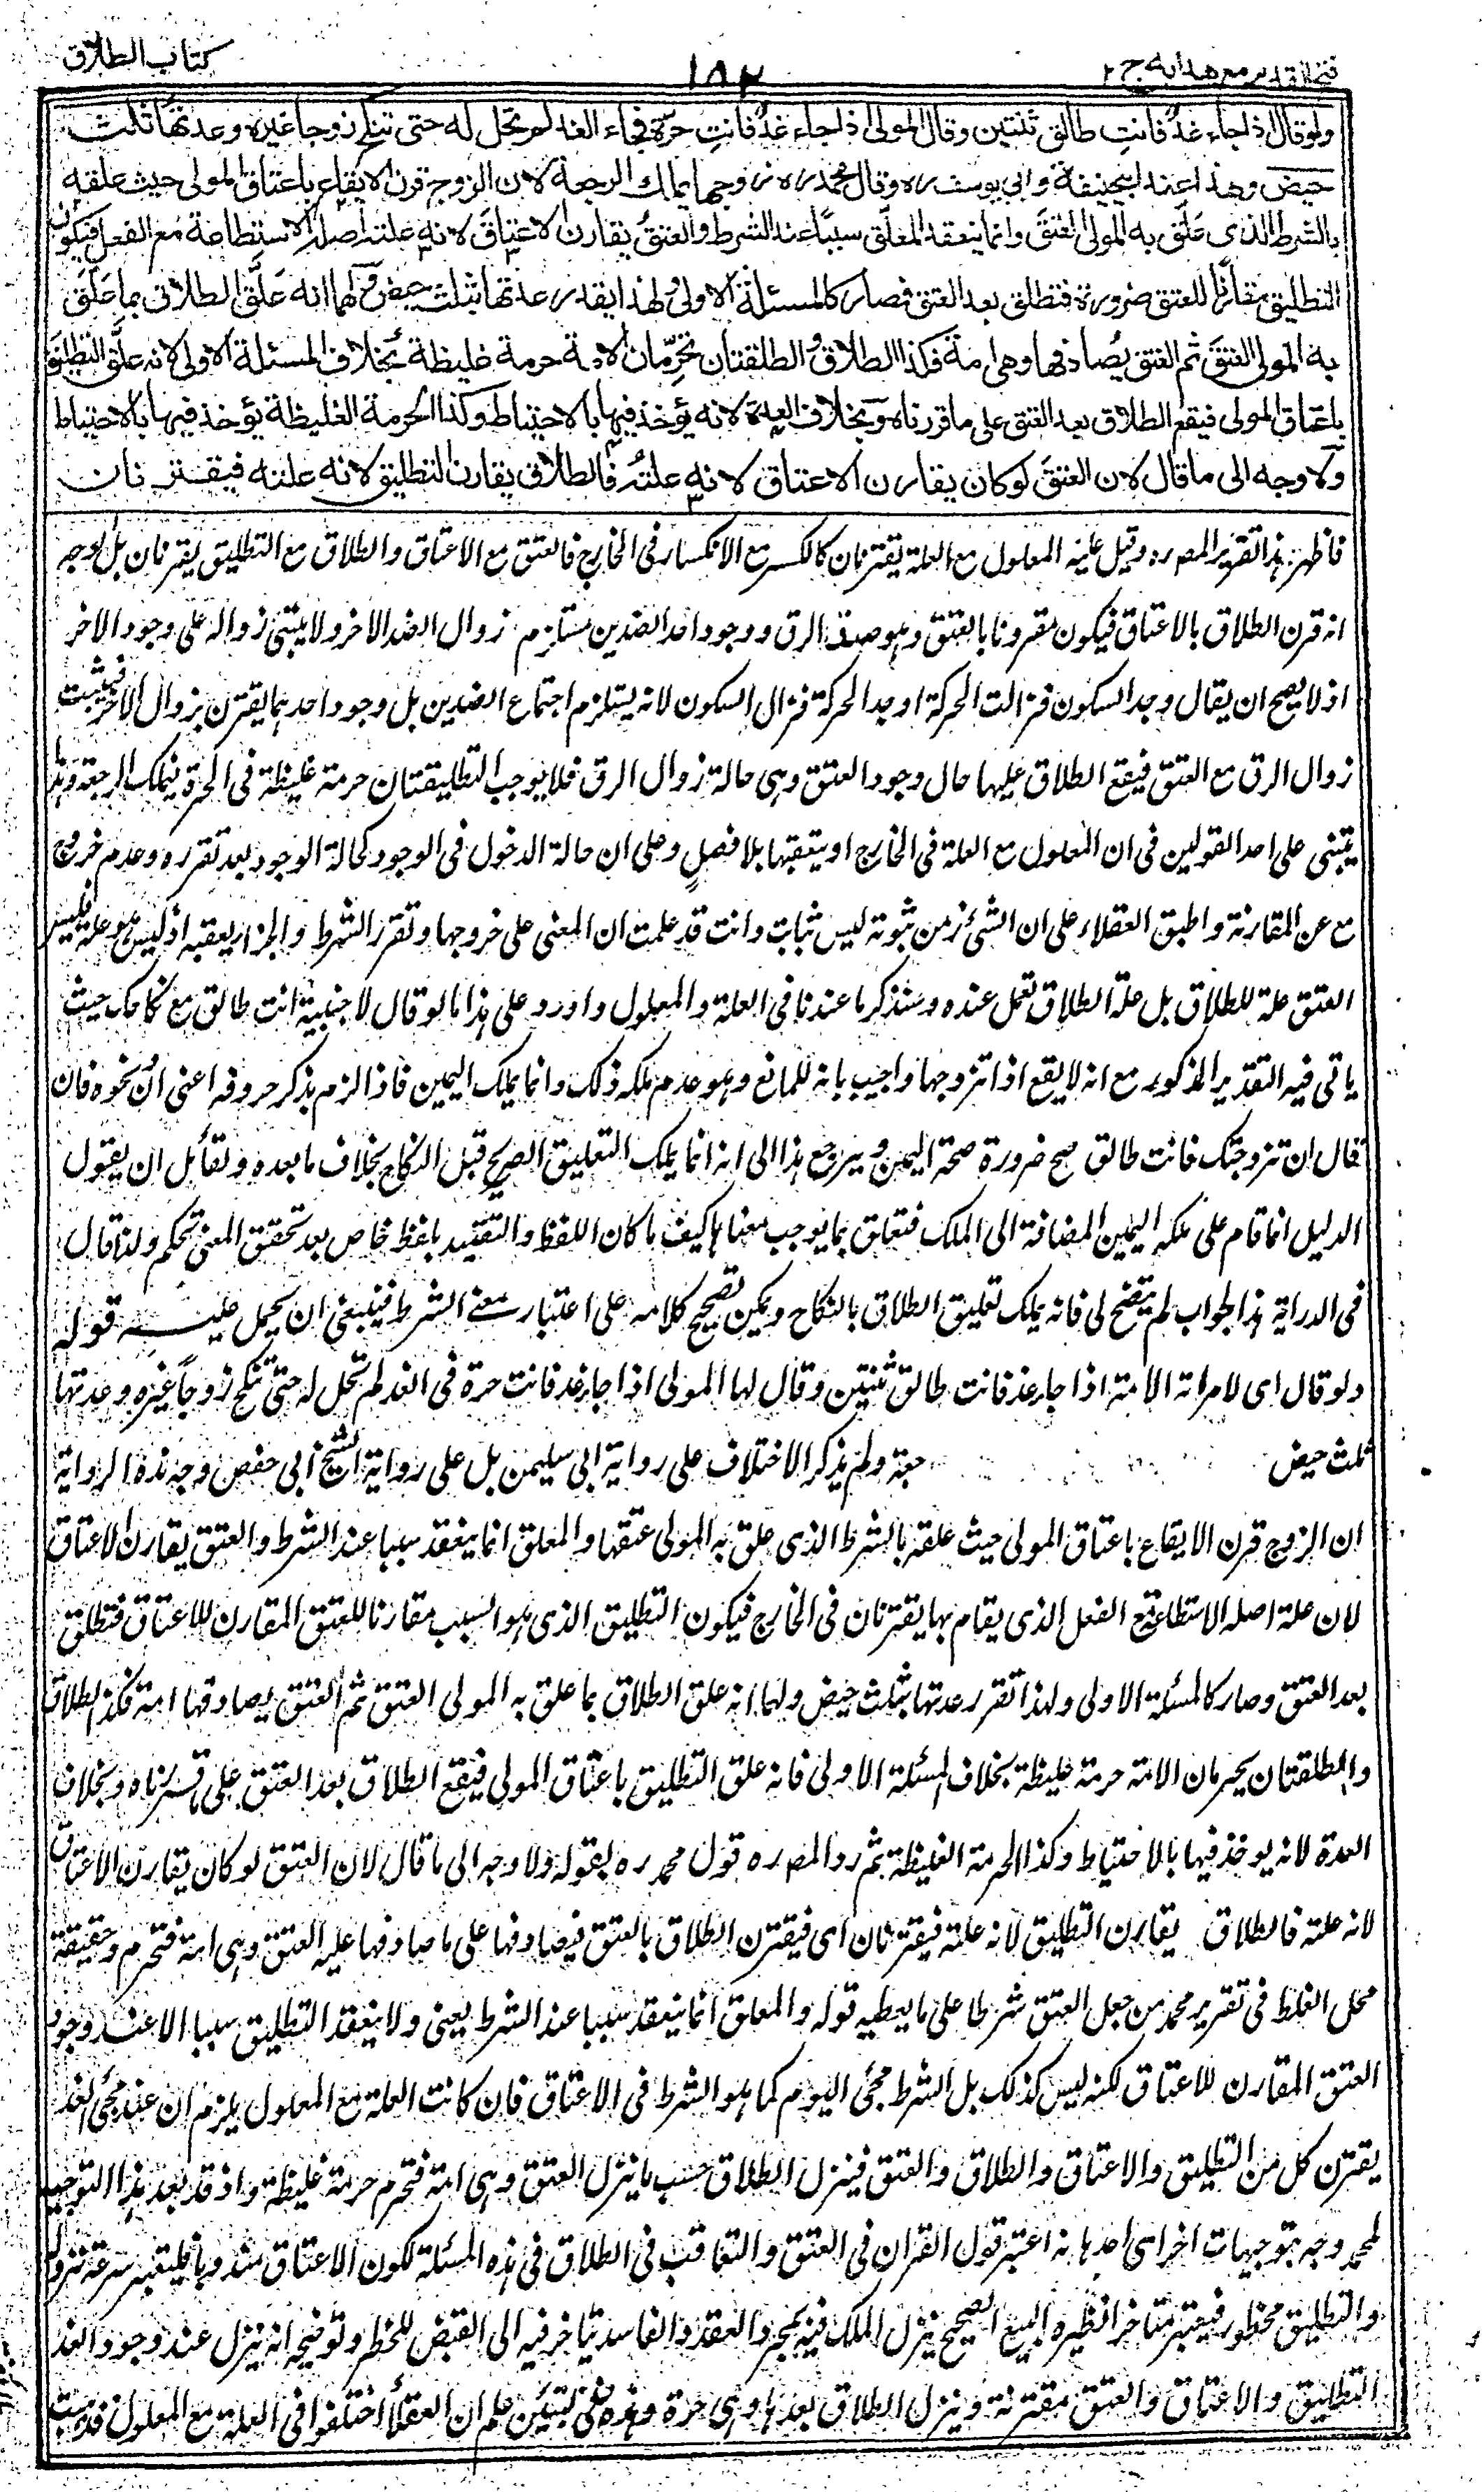 فتح القدير مع هدايه ج ٢
١٨٢
كتاب الطلاق
ولو قال اذا جاء غدٌ فانتِ طالق ثنتين وقال المولى اذا جاء غدٌ فانتِ حرّة فجاء الغد لم تحل له حتى تنكح زوجا غيره وعدتها ثلث
حيض وهذا عند ابيحنيفة وابي يوسف ره وقال محمد ره زوجها يملك الرجعة لان الزوج قرن الايقاع باعتاق المولى حيث علقه
بالشرط الذى عَلّق به المولى العتقَ وانما ينعقد المعلّق سببًا عند الشرط والعتقُ يقارن الاعتاق لانه علته اصله الاستطاعة مع الفعل فيكون
التطليق مقارنًا للعتق ضرورة فتطلق بعد العتق فصار كالمسئلة الاولى ولهذا يقدر عدتها بثلث حيض ولهما انه عَلّق الطلاق بما عَلّق
به المولى العتقَ ثم العتق يُصادفها وهى امة فكذا الطلاق والطلقتان تحرّمان الامة حرمة غليظة بخلاف المسئلة الاولى لانه علّق التطليق
باعتاق المولى فيقع الطلاق بعد العتق على ما قررناه وبخلاف العدة لانه يؤخذ فيها بالاحتياط وكذا الحرمة الغليظة يؤخذ فيها بالاحتياط
ولا وجه الى ما قال لان العتقَ لو كان يقارن الاعتاق لانه علته فالطلاق يقارن التطليق لانه علته فيقترنان
فاظهر هذا التقرير المصره وقيل عليه المعلول مع العلة يقترنان كالكسر مع الانكسار فى الخارج فالعتق مع الاعتاق والطلاق مع التطليق يقترنان بل لوجه
انه قرن الطلاق بالاعتاق فيكون مقرونا بالعتق وهو ضد الرق ووجود احد الضدين مستلزم زوال الضد الاخر ولا يبتنى زواله على وجود الاخر
اذ لا يصح ان يقال وجد السكون فزالت الحركة او وجد الحركة فزال السكون لانه يستلزم اجتماع الضدين بل وجود احدهما يقترن بزوال الاخر فيثبت
زوال الرق مع العتق فيقع الطلاق عليها حال وجود العتق وهى حالة زوال الرق فلا يوجب التطليقتان حرمة غليظة فى الحرة فيملك الرجعة وهذا
يبتنى على احد القولين فى ان المعلول مع العلة فى الخارج او يتعقبها بلا فصل وعلى ان حالة الدخول فى الوجود كحالة الوجود بعد تقرره وعدم خروج
مع عن المقارنة واطبق العقلاء على ان الشئ زمن ثبوته ليس ثبابت وانت قد علمت ان المعنى على خروجها وتقرر الشرط والجزاء يعقبه اذ ليس هو علة فليس
العتق علة للطلاق بل علة الطلاق تعمل عنده وسنذكر ما عندنا فى العلة والمعلول واورد على هذا ما لو قال لاجنبية انت طالق مع نكاحك حيث
ياتى فيه التقدير المذكور مع انه لا يقع اذا تزوجها واجيب بانه للمانع وهو عدم ملكه ذلك وانما يملك اليمين فاذا لزم بذكر حروفه اعنى ان ونحوه فان
قال ان تزوجتك فانت طالق صح ضرورة صحة اليمين ويرجع هذا الى انه انما يملك التعليق الصريح قبل النكاح بخلاف ما بعده ولقائل ان يقول
الدليل انما قام على ملكه اليمين المضافة الى الملك فتعلق بما يوجب معناها كيف ما كان اللفظ والتقييد بلفظ خاص بعد تحقق المعنى تحكم ولذا قال
فى الدراية هذا الجواب لم يتضح لى فانه يملك تعليق الطلاق بالنكاح ويمكن تصحيح كلامه على اعتبار معنى الشرط فينبغى ان يحمل عليه قوله
ولو قال اى لامراته الامة اذا جاء غد فانت طالق ثنتين وقال لها المولى اذا جاء غد فانت حرة فى الغد لم تحل له حتى تنكح زوجاً غيره وعدتها
ثلث حيض جعة ولم يذكر الاختلاف على رواية ابى سليمن بل على رواية الشيخ ابى حفص وجه هذه الرواية
ان الزوج قرن الايقاع باعتاق المولى حيث علقه بالشرط الذى علق به المولى عتقها والمعلق انما ينعقد سببا عند الشرط والعتق يقارن الاعتاق
لان علة اصله الاستطاعة مع الفعل الذى يقام بها يقترنان فى الخارج فيكون التطليق الذى هو السبب مقارنا للعتق المقارن للاعتاق فتطلق
بعد العتق وصار كالمسئلة الاولى ولهذا تقرر عدتها بثلث حيض ولهما انه علق الطلاق بما علق به المولى العتق ثم العتق يصادفها امة فكذا الطلاق
والطلقتان يحرمان الامة حرمة غليظة بخلاف المسئلة الاولى فانه علق التطليق باعتاق المولى فيقع الطلاق بعد العتق على ما قررناه وبخلاف
العدة لانه يوخذ فيها بالاحتياط وكذا الحرمة الغليظة ثم رد المصره قول محمد ره بقوله ولا وجه الى ما قال لان العتق لو كان يقارن الاعتاق
لانه علته فالطلاق يقارن التطليق لانه علته فيقترنان اى فيقترن الطلاق بالعتق فيصادفها على ما صادفها عليه العتق وهى امة فتحرم وحقيقة
محل الغلط فى تقرير محمد من جعل العتق شرطا على ما يعطيه قوله والمعلق انما ينعقد سببا عند الشرط يعنى ولا ينعقد التطليق سببا الا عند وجود
العتق المقارن للاعتاق لكنه ليس كذلك بل الشرط مجئ اليوم كما هو الشرط فى الاعتاق فان كانت العلة مع المعلول يلزم ان عند مجئ الغد
يقترن كل من التطليق والاعتاق والطلاق والعتق فينزل الطلاق حسب ما ينزل العتق وهى امة فتحرم حرمة غليظة واذ قد بعد هذا التوجيه
لمحمد وجه بتوجيهات اخرى احدها انه اعتبر قول القران فى العتق والتعاقب فى الطلاق فى هذه المسئلة لكون الاعتاق مندوبا فليعتبر سرعة نزوله
والتطليق محظور فيعتبر متاخرا نظيره البيع الصحيح ينزل الملك فيه بمجرد العقد والفاسد يتاخر فيه الى القبض للخطر وتوضيحه انه ينزل عند وجود الغد
التطليق والاعتاق والعتق مقترنة وينزل الطلاق بعدها وهى حرة علم ان العقلاء اختلفوا فى العلة مع المعلول فذهبت